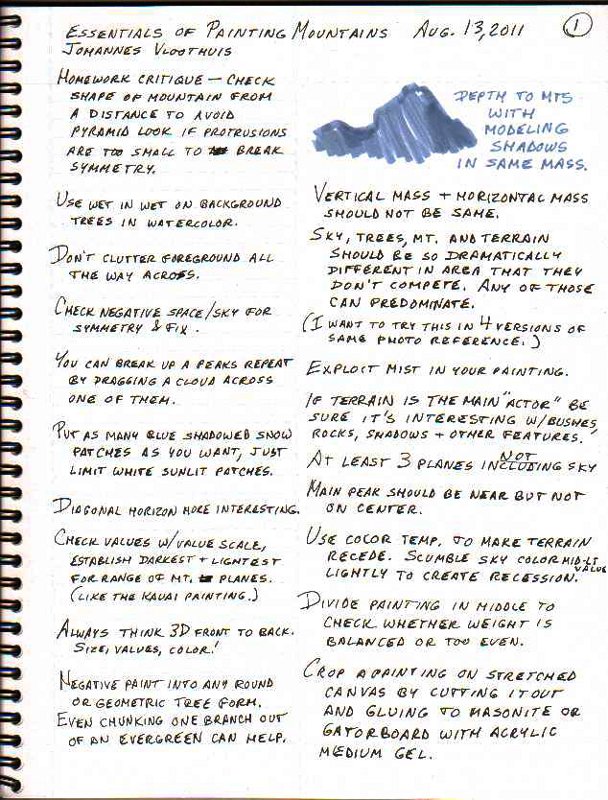 Essentials of Painting Mountains Aug. 13, 2011 1
Johannes Vloothuis
Homework critique — check
shape of mountain from
a distance to avoid
pyramid look if protrusions
are too small to break
symmetry.
Use wet in wet on background
trees in watercolor.
Don't clutter foreground all
the way across.
Check negative space/sky for
symmetry & fix.
You can break up a peaks repeat
by dragging a cloud across
one of them.
Put as many blue shadowed snow
patches as you want, just
limit white sunlit patches.
Diagonal horizon more interesting.
Check values w/value scale,
establish darkest + lightest
for range of mt. planes.
(Like the Kauai painting.)
Always think 3D front to back.
Size, values, color!
Negative paint into any round
or geometric tree form.
Even chunking one branch out
of an evergreen can help.
Depth to mts
with
modeling
shadows
in same mass.
Vertical mass + horizontal mass
should not be same.
Sky, trees, mt. and terrain
should be so dramatically
different in area that they
don't compete. Any of those
can predominate.
(I want to try this in 4 versions of
same photo reference.)
Exploit mist in your painting.
If terrain is the main "actor" be
sure it's interesting w/bushes,
rocks, shadows + other features.
At least 3 planes NOT including sky
Main peak should be near but not
on center.
Use color temp. to make terrain
recede. Scumble sky color mid-lt value
lightly to create recession.
Divide painting in middle to
check whether weight is
balanced or too even.
Crop a painting on stretched
canvas by cutting it out
and gluing to masonite or
gatorboard with acrylic
medium gel.